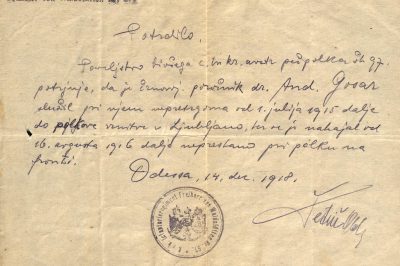 Potrdilo.
Poveljstvo bivšega c. in kr. avstr. pešpolka št. 97.
potrjuje, da je črnovoj. poročnik dr. And. Gosar
služil pri njem nepretrgoma od 1. julija 1915 dalje
do polkove vrnitve v Ljubljano, ter se je nahajal od
16. avgusta 1916 dalje neprestano pri polku na
fronti.
Odessa, 14. dec. 1918.